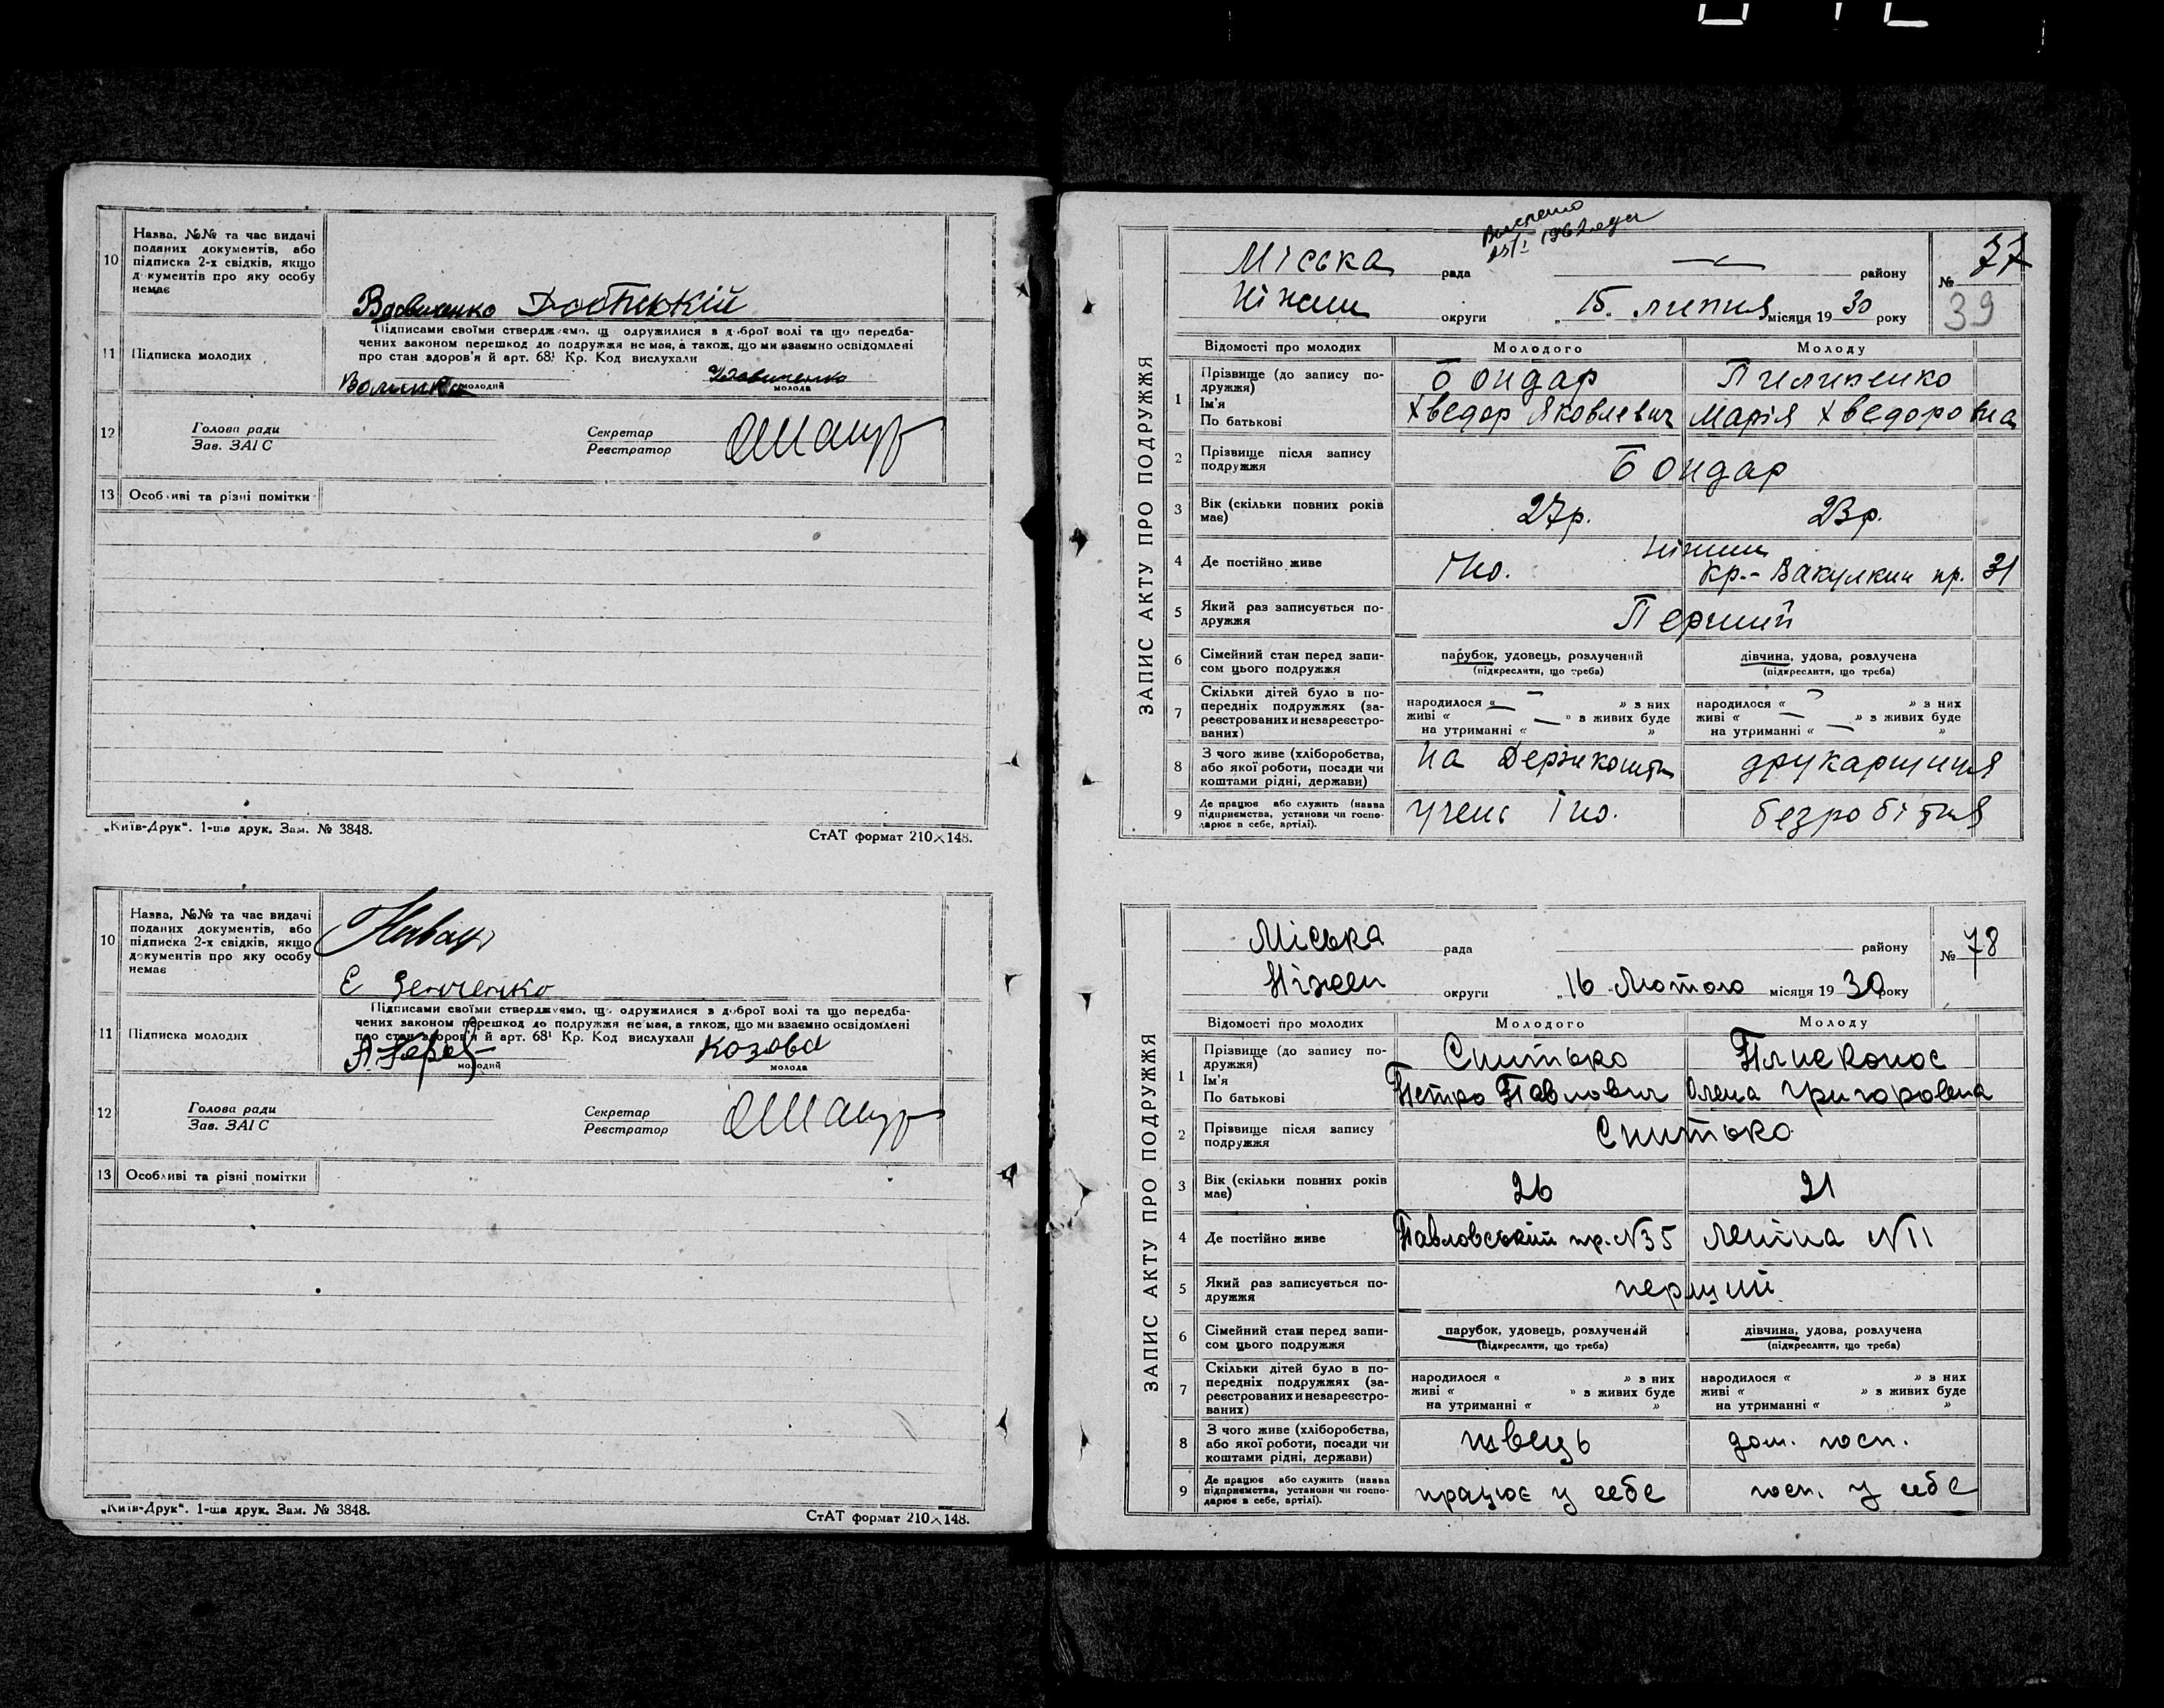 10
Назва, №№ та час видачі
поданих документів, або
підписка 2-х свідків, якщо
документів про яку особу
немає
Вдовиченко
11
Підписка молодих
Підписами своїми стверджуємо, що одружилися з доброї волі та що передба-
чених законом перешкод до подружжя не має, а також, що ми взаємно освідомлені
про стан здоров'я й арт. 68¹ Кр. Код вислухали
молодий
Вдовиченко
молода
12
Голова ради
Зав. ЗАГС
Секретар
Реєстратор
13
Особливі та різні помітки
„Київ-Друк“. 1-ша друк. Зам. № 3848.
СтАТ формат 210×148.
10
Назва, №№ та час видачі
поданих документів, або
підписка 2-х свідків, якщо
документів про яку особу
немає
11
Підписка молодих
Підписами своїми стверджуємо, що одружилися з доброї волі та що передба-
чених законом перешкод до подружжя не має, а також, що ми взаємно освідомлені
про стан здоров'я й арт. 68¹ Кр. Код вислухали
молодий
Козова
молода
12
Голова ради
Зав. ЗАГС
Секретар
Реєстратор
13
Особливі та різні помітки
„Київ-Друк“. 1-ша друк. Зам. № 3848.
СтАТ формат 210×148.
ЗАПИС АКТУ ПРО ПОДРУЖЖЯ
Міська рада — району
№ 77
39
Ніжин округи „15“ липня місяця 1930 року
Відомості про молодих
Молодого
Молоду
1
Прізвище (до запису по-
дружжя)
Ім'я
По батькові
Бондар
Пилипенко
Хведор Яковлевич
Марія Хведоровна
2
Прізвище після запису
подружжя
Бондар
3
Вік (скільки повних років
має)
27р.
23р.
4
Де постійно живе
Іно.
Ніжин
Кр.-Вакулкин пр. 31
5
Який раз записується по-
дружжя
Перший
6
Сімейний стан перед запи-
сом цього подружжя
парубок, удовець, розлучений
(підкреслити, що треба)
дівчина, удова, розлучена
(підкреслити, що треба)
7
Скільки дітей було в по-
передніх подружжях (за-
реєстрованих и незареєстро-
ваних)
народилося « — » з них
живі « — » з живих буде
на утриманні « »
народилося « — » з них
живі « — » з живих буде
на утриманні « — »
8
З чого живе (хліборобства,
або якої роботи, посади чи
коштами рідні, держави)
на Держкошти
друкарщиця
9
Де працює або служить (назва
підприємства, установи чи госпо-
дарює в себе, артілі).
учень Іно.
безробітня
ЗАПИС АКТУ ПРО ПОДРУЖЖЯ
Міська рада району
№ 78
Ніжен округи „16 Лютого місяця 1930 року
Відомості про молодих
Молодого
Молоду
1
Прізвище (до запису по-
дружжя)
Ім'я
По батькові
Снитько
Плисконос
Петро Павлович
Олена Григоровена
2
Прізвище після запису
подружжя
Снитько
3
Вік (скільки повних років
має)
26
21
4
Де постійно живе
Павловський пр. N35
Леніна N11
5
Який раз записується по-
дружжя
перший
6
Сімейний стан перед запи-
сом цього подружжя
парубок, удовець, розлучений
(підкреслити, що треба)
дівчина, удова, розлучена
(підкреслити, що треба)
7
Скільки дітей було в по-
передніх подружжях (за-
реєстрованих и незареєстро-
ваних)
народилося « » з них
живі « » з живих буде
на утриманні « »
народилося « » з них
живі « » з живих буде
на утриманні « »
8
З чого живе (хліборобства,
або якої роботи, посади чи
коштами рідні, держави)
швець
дом. госп.
9
Де працює або служить (назва
підприємства, установи чи госпо-
дарює в себе, артілі).
працює у себе
госп. у себе